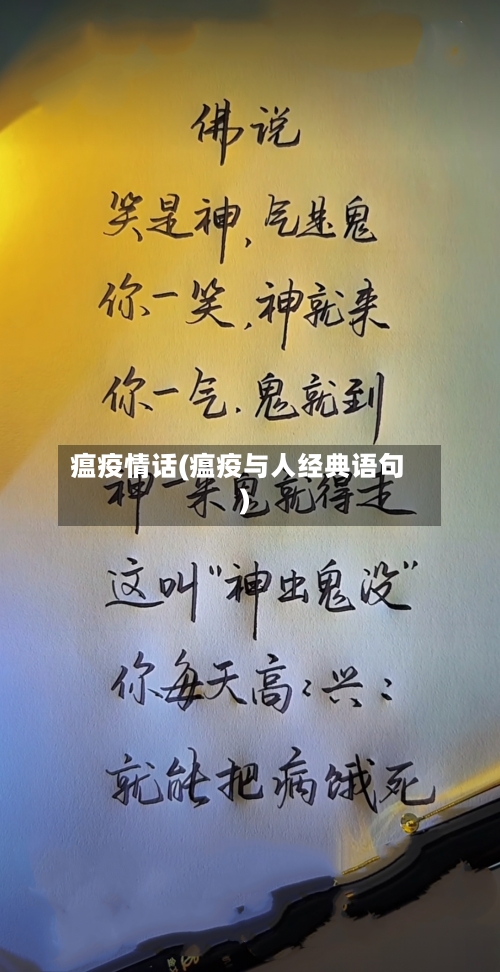 佛说
笑是神，气是鬼
你一笑，神就来
你一气．鬼就到
瘟疫情话(瘟疫与人经典语句
)
神一来鬼就得走
这叫“神出鬼没”
你每天高:兴:
就能把病饿死